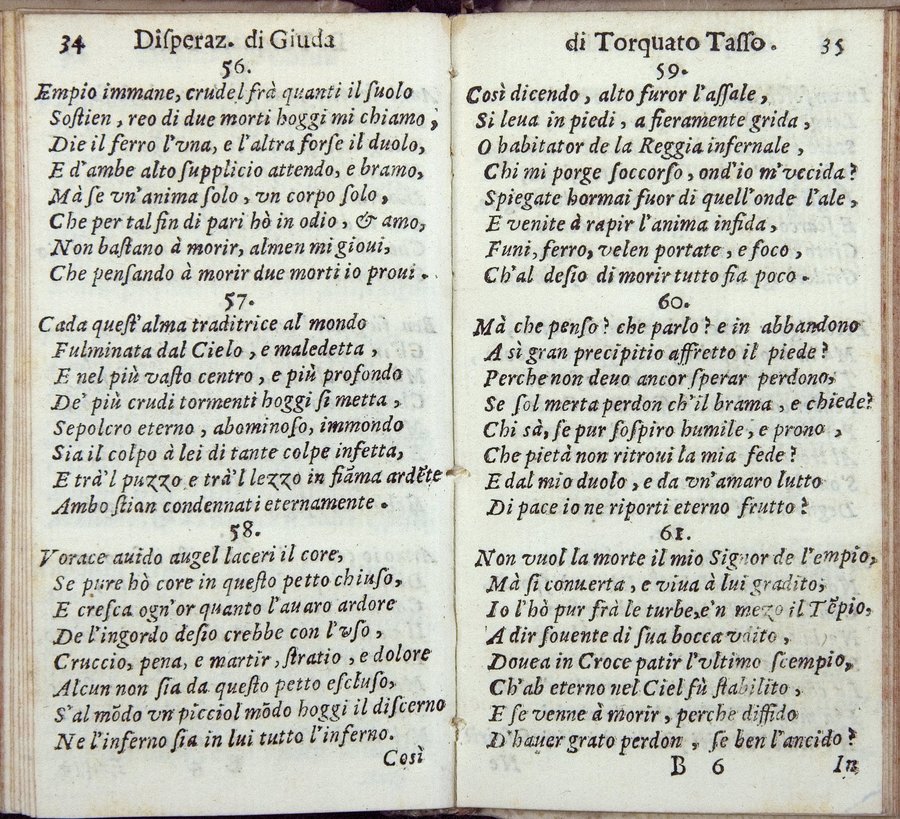 34 Diſperaz. di Giuda
56.
Empio immane, crudel frà quanti il ſuolo
Soſtien, reo di due morti hoggi mi chiamo,
Die il ferro l'vna, e l'altra forſe il duolo,
E d'ambe alto ſupplicio attendo, e bramo,
Mà ſe vn'anima ſolo, vn corpo ſolo,
Che per tal fin di pari hò in odio, & amo,
Non baſtano à morir, almen mi gioui,
Che penſando à morir due morti io proui.
57.
Cada queſt'alma traditrice al mondo
Fulminata dal Cielo, e maledetta,
E nel più vaſto centro, e più profondo
De' più crudi tormenti hoggi ſi metta,
Sepolcro eterno, abominoſo, immondo
Sia il colpo à lei di tante colpe infetta,
E trà'l puzzo e trà'l lezzo in fiãma ardẽte
Ambo ſtian condennati eternamente.
58.
Vorace auido augel laceri il core,
Se pure hò core in queſto petto chiuſo,
E creſca ogn'or quanto l'auaro ardore
De l'ingordo deſio crebbe con l'vſo,
Cruccio, pena, e martir, ſtratio, e dolore
Alcun non ſia da queſto petto eſcluſo,
S'al mõdo vn picciol mõdo hoggi il diſcerno
Ne l'inferno ſia in lui tutto l'inferno.
Così
di Torquato Taſſo. 35
59.
Così dicendo, alto furor l'aſſale,
Si leua in piedi, a fieramente grida,
O habitator de la Reggia infernale,
Chi mi porge ſoccorſo, ond'io m'vccida?
Spiegate hormai fuor di quell'onde l'ale,
E venite à rapir l'anima infida,
Funi, ferro, velen portate, e foco,
Ch'al deſio di morir tutto fia poco.
60.
Mà che penſo? che parlo? e in abbandono
A sì gran precipitio affretto il piede?
Perche non deuo ancor ſperar perdono,
Se ſol merta perdon ch'il brama, e chiede?
Chi sà, ſe pur ſoſpiro humile, e prono,
Che pietà non ritroui la mia fede?
E dal mio duolo, e da vn'amaro lutto
Di pace io ne riporti eterno frutto?
61.
Non vuol la morte il mio Signor de l'empio,
Mà ſi conuerta, e viua à lui gradito,
Io l'hò pur frà le turbe, e'n mezo il Tẽpio,
A dir ſouente di ſua bocca vdito,
Douea in Croce patir l'vltimo ſcempio,
Ch'ab eterno nel Ciel fù ſtabilito,
E ſe venne à morir, perche diffido
D'hauer grato perdon, ſe ben l'ancido?
B 6 In